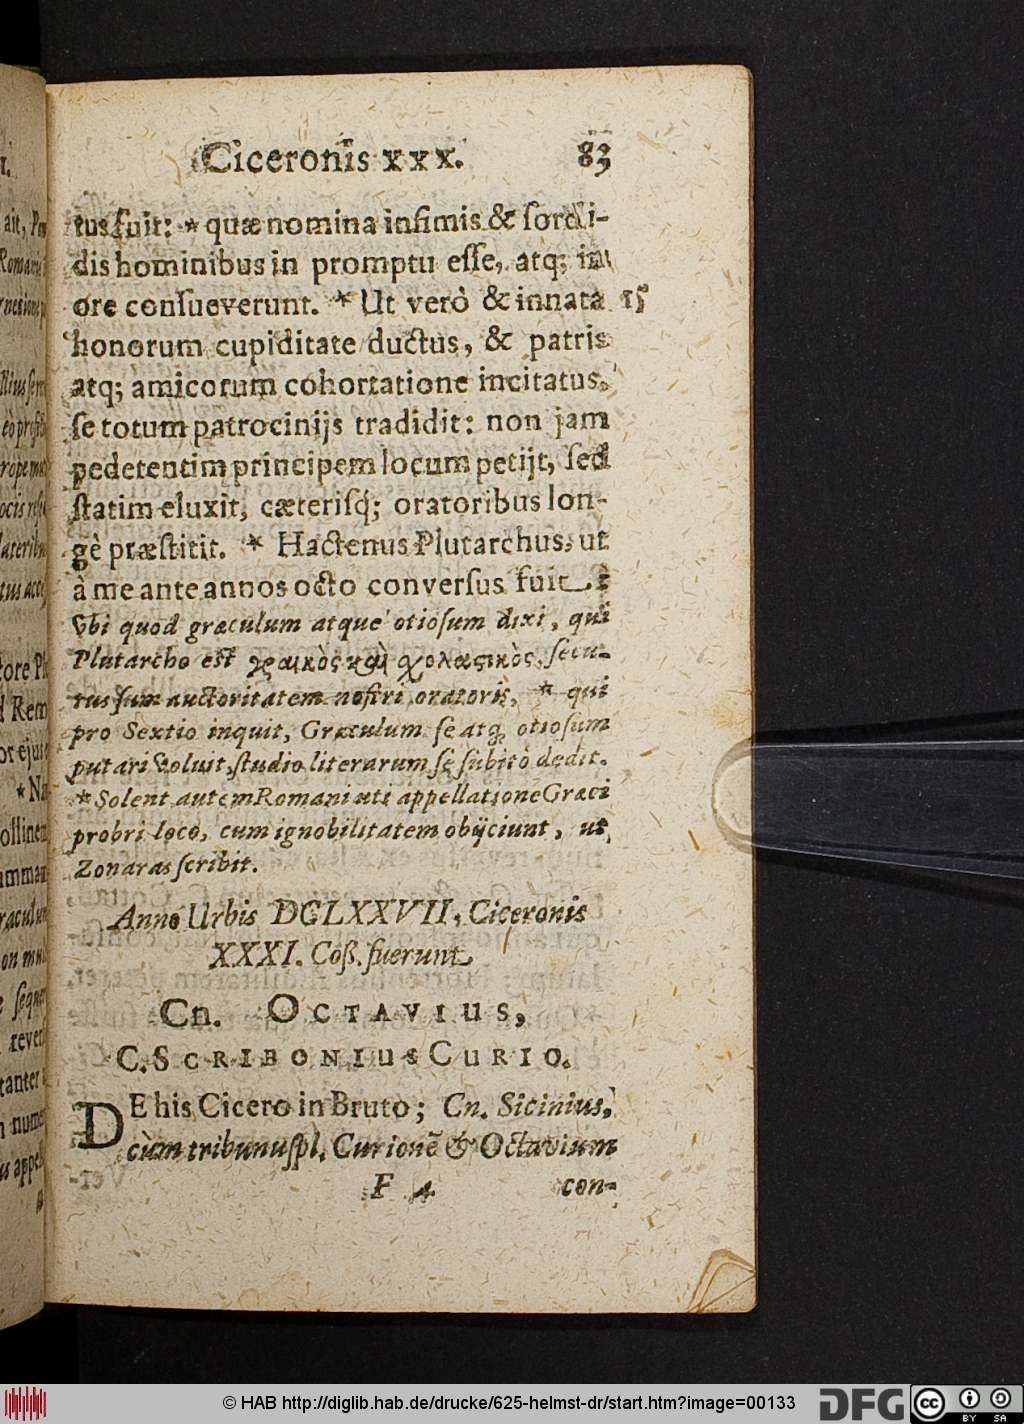 Ciceronis xxx. 83
tus fuit: * quæ nomina infimis & ſordi-
dis hominibus in promptu eſſe, atq; in
ore conſueverunt. * Ut verò & innata 15
honorum cupiditate ductus, & patris
atq; amicorum cohortatione incitatus,
ſe totum patrocinijs tradidit: non jam
pedetentim principem locum petijt, ſed
ſtatim eluxit, cæteriſq; oratoribus lon-
gè præſtitit. * Hactenus Plutarchus, ut
à me ante annos octo converſus fuit.
Vbi quod græculum atque otioſum dixi, qui
Plutarcho eſt γραικὸς καὶ χολαςικὸς, ſecu-
tus ſum auctoritatem noſtri oratoris, * qui
pro Sextio inquit, Græculum ſe atq; otioſum
putari voluit, ſtudio literarum ſe ſubitò dedit.
* Solent autem Romani uti appellatione Græci
probri loco, cum ignobilitatem obijciunt, ut
Zonaras ſcribit.
Anno Urbis DCLXXVII, Ciceronis
XXXI. Coß. fuerunt
Cn. OCTAVIUS,
C. SCRIBONIUS CURIO.
DE his Cicero in Bruto; Cn. Sicinius,
cùm tribunuſpl. Curionē & Octavium
F 4 con-
I.
ait,
* Na
© HAB http://diglib.hab.de/drucke/625-helmst-dr/start.htm?image=00133
DFG
cc
BY SA